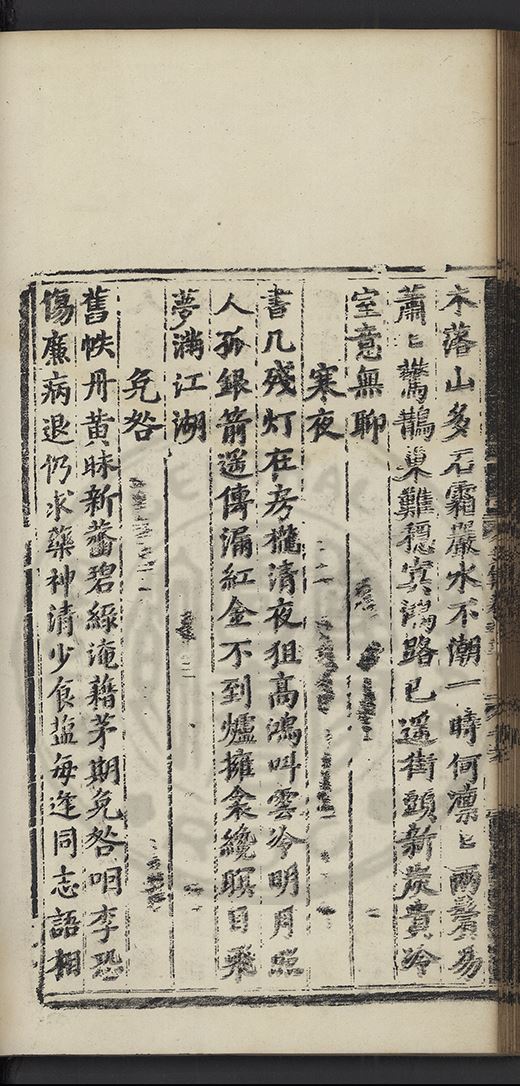 木落山多石霜嚴水不潮一時何凜〻兩鬢易
蕭〻驚鵲巢難穩賓鴻路已遥街頭新炭貴冷
室意無聊
寒夜
書几殘灯在房櫳清夜徂高鴻叫雲冷明月照
人孤銀箭遥傳漏紅金不到爐擁衾纔瞑目飛
夢滿江湖
免咎
舊帙丹黄昧新虀碧綠淹藉茅期免咎咽李恐
傷廉病退仍求藥神清少食盐每逢同志語相